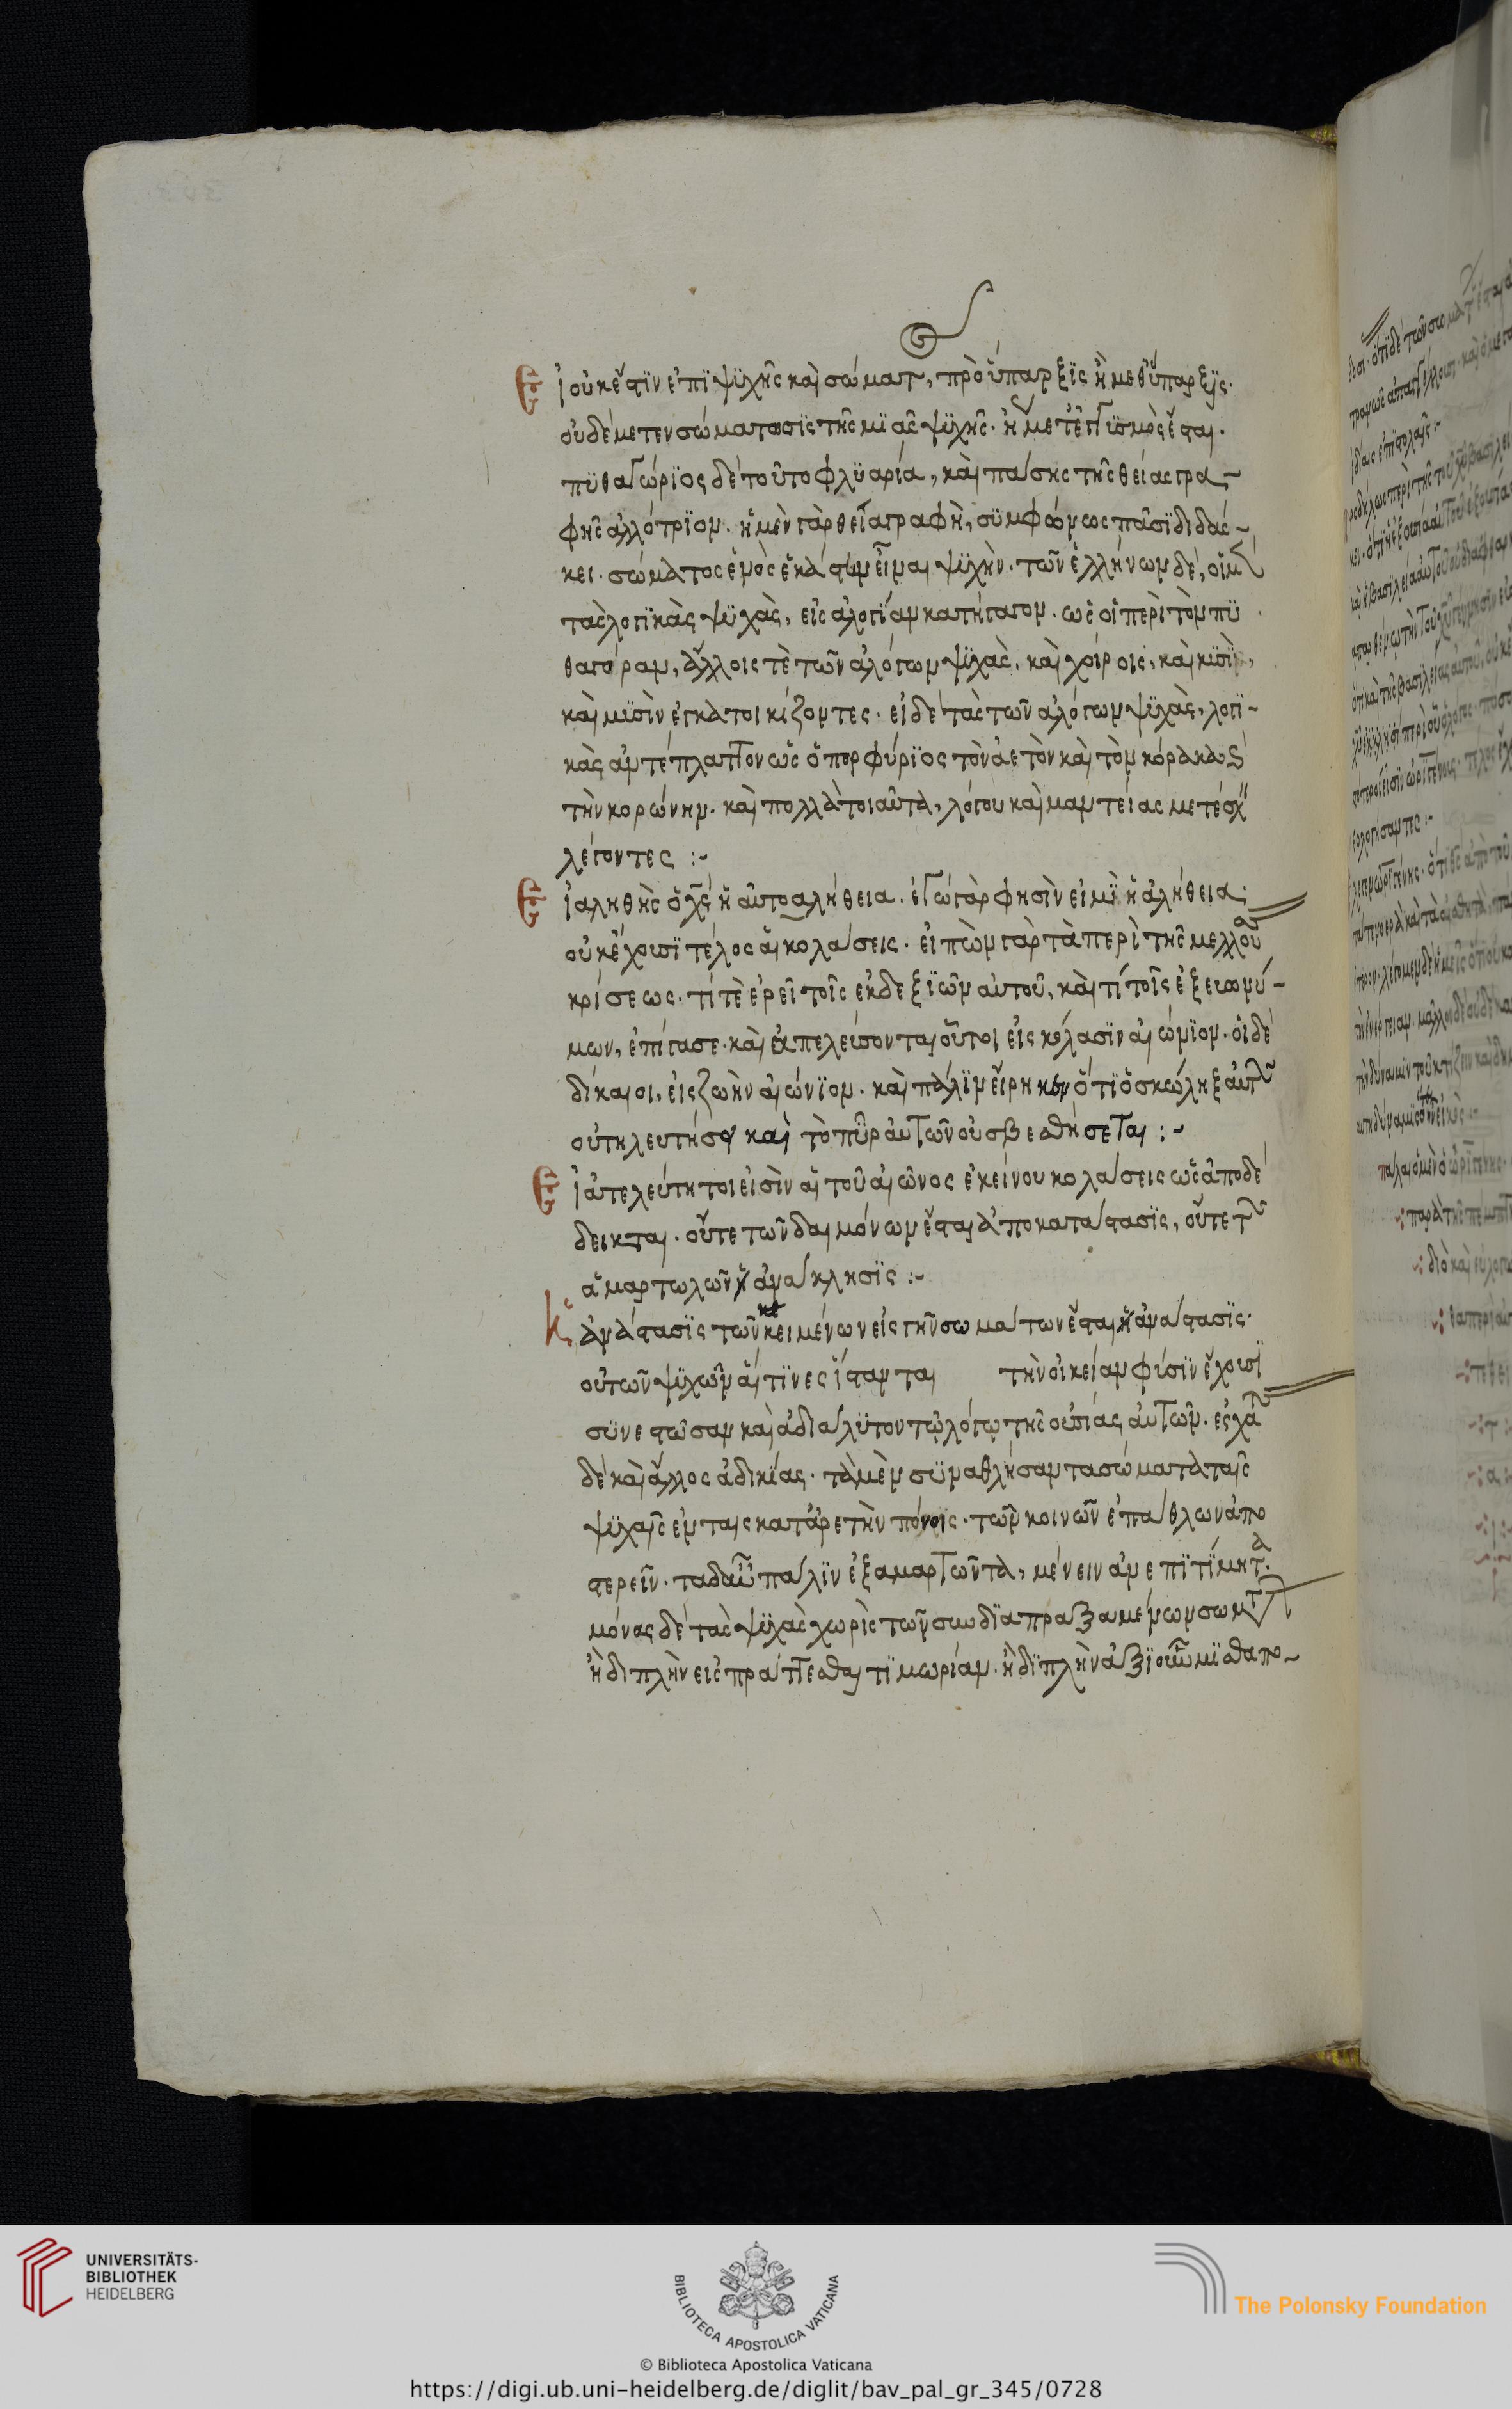 Εἰ οὐκ ἔστιν ἐπὶ ψυχῆς καὶ σώματ, προΰπαρξις ἢ μεθύπαρξις·
οὐδὲ μετενσωμάτωσις τῆς μιᾶς ψυχῆς· ἢ μετεγγισμὸς ἔσται·
πυθαγώριος δὲ τοῦτο φλυαρία, καὶ πάσης τῆς θείας γρα-
φῆς αλλότριον· ἡ μὲν γὰρ θεία γραφὴ, συμφώνως πᾶσι διδάσ-
κει· σώματος ἑνὸς ἑκάστων εἶναι ψυχὴν· τῶν ἑλλήνων δὲ, οἱ μὲν
τὰς λογικὰς ψυχὰς, εἰς αλογίαν κατήγαγον· ὡς οἱ περὶ τὸν πυ
θαγόραν, ἄλλοις τὲ τῶν αλόγων ψυχὰς, καὶ χοίροις, καὶ κυσὶν,
καὶ μυσὶν ἐγκατοικίζοντες· εἰ δὲ τὰς τῶν αλόγων ψυχὰς, λογι-
κὰς ἀντέπλαττον ὡς ὁ πορφύριος τὸν ἀετὸν καὶ τὸν κόρακα καὶ
τὴν κορώνην· καὶ πολλὰ τοιαῦτα, λόγου καὶ μαντείας μετέσχ
λέγοντες :~
Εἰ αληθὴς ὁ χς ἡ αὐτοαλήθεια· ἐγὼ γὰρ φησὶν εἰμὶ ἡ ἀλήθεια·
οὐκ ἔχουσι τέλος αἱ κολάσεις· εἰπὼν γὰρ τὰ περὶ τῆς μελλου
κρίσεως· τί τὲ ἐρεῖ τοῖς ἐκ δεξιῶν αὐτοῦ, καὶ τί τοῖς ἐξ εὐωνύ-
μων, ἐπήγασε· καὶ ἀπελεύσονται οὗτοι εἰς κόλασιν αἰώνιον· οἱ δὲ
δίκαιοι, εἰς ζωὴν αἰώνιον· καὶ πάλιν εἴρηκεν ὅτι ὁ σκώληξ αὐτῶν
οὐ τηλευτήσει καὶ τὸ πῦρ αὐτῶν οὐ σβεσθήσεται :~
Εἰ ἀτελεύτητοι εἰσὶν αἱ τοῦ αἰῶνος ἐκείνου κολάσεις ὡς ἀποδέ
δεικται· οὔτε τῶν δαιμόνων ἔσται ἀποκατάστασις, οὔτε τῶν
ἁμαρτωλῶν ἡ ἀνάκλησις :~
ἀνάστασις τῶν κειμένων εἰς γῆν σωμάτων ἔσται ἡ ἀνάστασις·
οὐ τῶν ψυχῶν αἵ τινες ἵσταται τὴν οἰκείαν φύσιν ἔχουσι
συνεστῶσαν καὶ ἀδιάλυτον τῷ λόγῳ τῆς οὐσίας αὐτῶν· ἐσχάτ
δὲ καὶ ἄλλος ἀδικίας· τὰ μὲν συναθλήσαντα σώματα ταῖς
ψυχαῖς ἐν ταις κατ ἀρετὴν πόνοις· τῶν κοινῶν ἐπάθλων ἀπο
στερεῖν· τὰ δ αὖ πάλιν ἐξαμαρτῶντα, μένειν ἀνεπιτίμητα·
μόνας δὲ τὰς ψυχὰς χωρὶς τῶν συνδιαπραξαμένων σωμτ
ἢ διπλὴν εἰσπράττεσθαι τιμωρίαν· ἢ διπλὴν ἀξιοῦν μισθαπο-
UNIVERSITÄTS-
BIBLIOTHEK
HEIDELBERG
BIBLIOTECA APOSTOLICA VATICANA
The Polonsky Foundation
© Biblioteca Apostolica Vaticana
https://digi.ub.uni-heidelberg.de/diglit/bav_pal_gr_345/0728